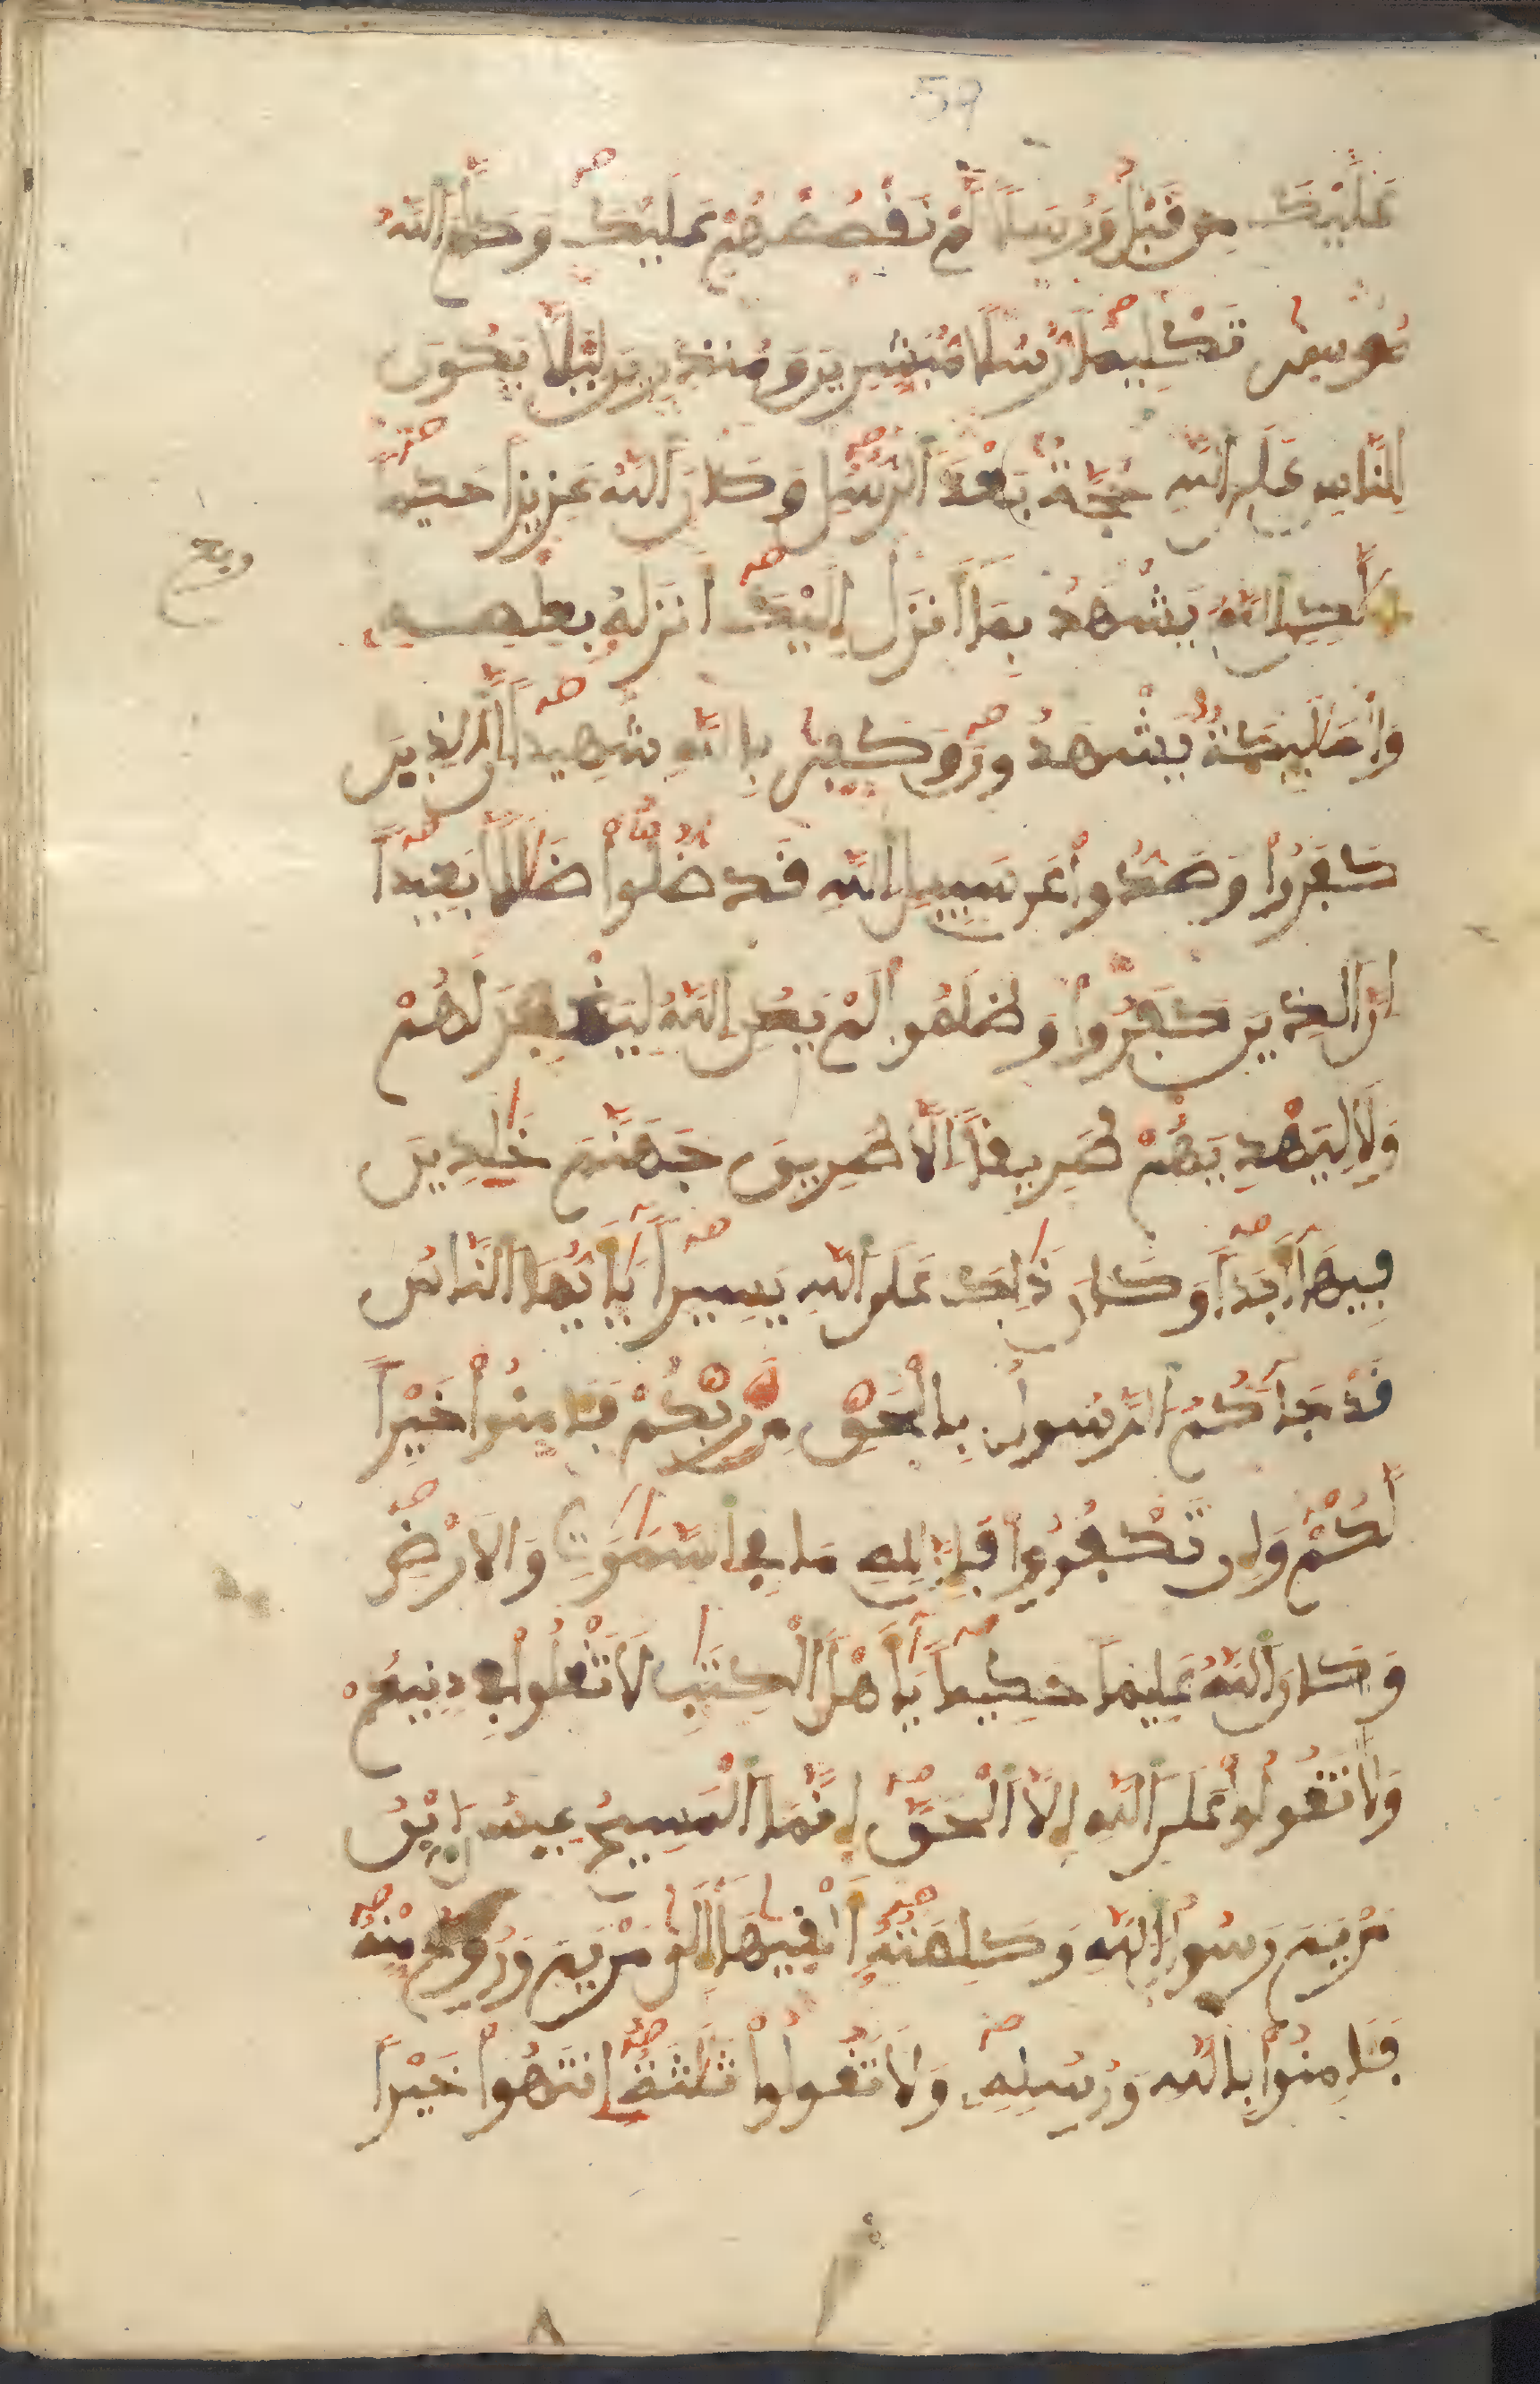 59
عَلَيْكَ مِن قَبْلُ وَرُسُلًا لَّمْ نَقْصُصْهُمْ عَلَيْكَ وَكَلَّمَ اللَّهُ
مُوسِىٰ تَكْلِيمًا رُّسُلًا مُّبَشِّرِينَ وَمُنذِرِينَ لِيَلَّا يَكُونَ
لِلنَّاسِ عَلَى اللَّهِ حُجَّةٌ بَعْدَ الرُّسُلِ وَكَانَ اللَّهُ عَزِيزًا حَكِيمًا
ربع
لَّكِنِ اللَّهُ يَشْهَدُ بِمَا أَنزَلَ إِلَيْكَ أَنزَلَهُ بِعِلْمِهِ
وَالْمَلَٰئِكَةُ يَشْهَدُونَ وَكَفِىٰ بِاللَّهِ شَهِيدًا إِنَّ الذِينَ
كَفَرُوا وَصَدُّوا عَن سَبِيلِ اللَّهِ قَد ضَّلُّوا ضَلَٰلًا بَعِيدًا
إِنَّ الذِينَ كَفَرُوا وَظَلَمُوا لَمْ يَكُنِ اللَّهُ لِيَغْفِرَ لَهُمْ
وَلَا لِيَهْدِيَهُمْ طَرِيقًا إِلَّا طَرِيقَ جَهَنَّمَ خَٰلِدِينَ
فِيهَا أَبَدًا وَكَانَ ذَٰلِكَ عَلَى اللَّهِ يَسِيرًا يَٰأَيُّهَا النَّاسُ
قَدْ جَاءَكُمُ الرَّسُولُ بِالْحَقِّ مِن رَّبِّكُمْ فَـَٔامِنُوا خَيْرًا
لَّكُمْ وَإِن تَكْفُرُوا فَإِنَّ لِلهِ مَا فِى السَّمَٰوَٰتِ وَالَارْضِ
وَكَانَ اللَّهُ عَلِيمًا حَكِيمًا يَٰأَهْلَ الْكِتَٰبِ لَا تَغْلُوا فِى دِينِكُمْ
وَلَا تَقُولُوا عَلَى اللَّهِ إِلَّا الْحَقَّ إِنَّمَا الْمَسِيحُ عِيسَى ابْنُ
مَرْيَمَ رَسُولُ اللَّهِ وَكَلِمَتُهُ أَلْقَيٰهَا إِلَىٰ مَرْيَمَ وَرُوحٌ مِّنْهُ
فَـَٔامِنُوا بِاللَّهِ وَرُسُلِهِ وَلَا تَقُولُوا ثَلَٰثَةٌ اِنتَهُوا خَيْرًا